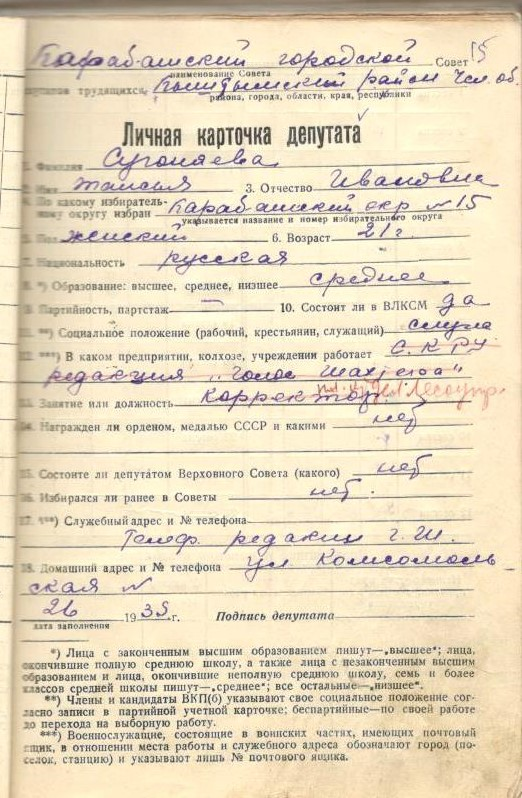 Карабашский городской Совет 15
наименование Совета
депутатов трудящихся, Кыштымский район Чел. об.
района, города, области, края, республики
Личная карточка депутата
1. Фамилия Сугоняева
2. Имя Таисия 3. Отчество Ивановна
4. По какому избиратель-
ному округу избран Карабашский окр №15
указывается название и номер избирательного округа
5. Пол женский 6. Возраст 21 г
7. Национальность русская
8. *) Образование: высшее, среднее, низшее среднее
9. Партийность, партстаж — 10. Состоит ли в ВЛКСМ да
11. **) Социальное положение (рабочий, крестьянин, служащий) служа
12. ***) В каком предприятии, колхозе, учреждении работает
редакция „Голос
13. Занятие или должность Корректор.
14. Награжден ли орденом, медалью СССР и какими нет
15. Состоите ли депутатом Верховного Совета (какого) нет
16. Избирался ли ранее в Советы нет.
17. ***) Служебный адрес и № телефона
Телеф. редакции г. Ш.
18. Домашний адрес и № телефона ул Комсомоль
ская №
26 1939 г. Подпись депутата
дата заполнения
*) Лица с законченным высшим образованием пишут—„высшее“; лица,
окончившие полную среднюю школу, а также лица с незаконченным высшим
образованием и лица, окончившие неполную среднюю школу, семь и более
классов средней школы пишут—„среднее“; все остальные—„низшее“.
**) Члены и кандидаты ВКП(б) указывают свое социальное положение сог-
ласно записи в партийной учетной карточке; беспартийные—по своей работе
до перехода на выборную работу.
***) Военнослужащие, состоящие в воинских частях, имеющих почтовый
ящик, в отношении места работы и служебного адреса обозначают город (по-
селок, станцию) и указывают лишь № почтового ящика.